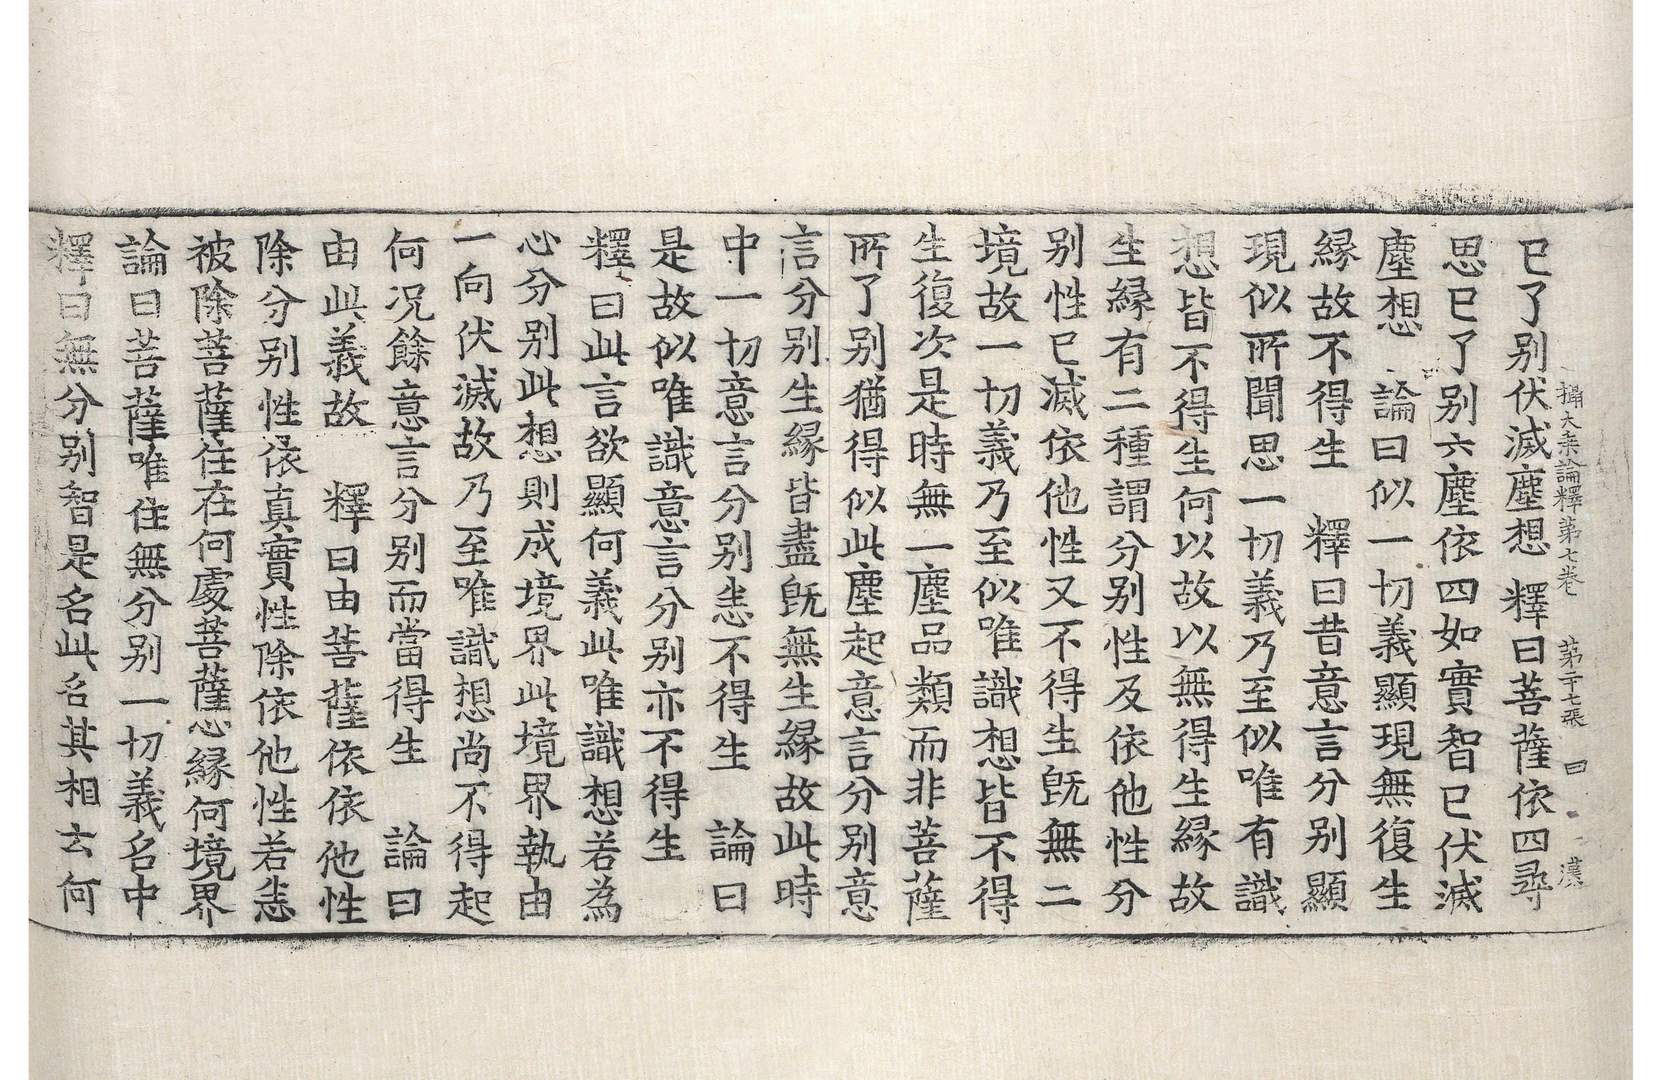 攝大乗論釋第七卷 第二十七張 曰 漢
已了别伏滅塵想 釋曰菩薩依四尋
思已了别六塵依四如實智已伏滅
塵想 論曰似一切義顯現無復生
縁故不得生 釋曰昔意言分别顯
現似所聞思一切義乃至似唯有識
想皆不得生何以故以無得生縁故
生縁有二種謂分别性及依他性分
别性已滅依他性又不得生旣無二
境故一切義乃至似唯識想皆不得
生復次是時無一塵品類而非菩薩
所了别猶得似此塵起意言分别意
言分别生縁皆盡旣無生縁故此時
中一切意言分别悉不得生 論曰
是故似唯識意言分别亦不得生
釋曰此言欲顯何義此唯識想若為
心分别此想則成境界此境界執由
一向伏滅故乃至唯識想尚不得起
何况餘意言分别而當得生 論曰
由此義故 釋曰由菩薩依依他性
除分别性依真實性除依他性若悉
被除菩薩住在何處菩薩心縁何境界
論曰菩薩唯住無分别一切義名中
釋曰無分别智是名此名其相云何